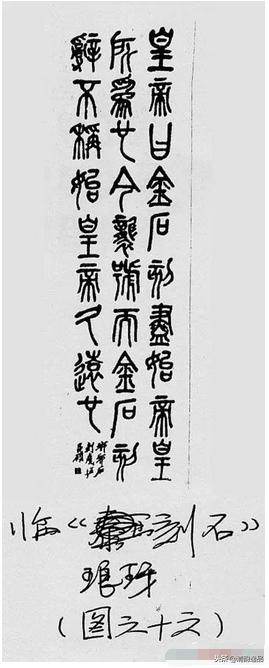 皇帝曰金石刻盡始帝皇
所為也今襲號而金石刻
辭不稱始皇帝久遠也
临《刻石》
琅玡
（图之十六）